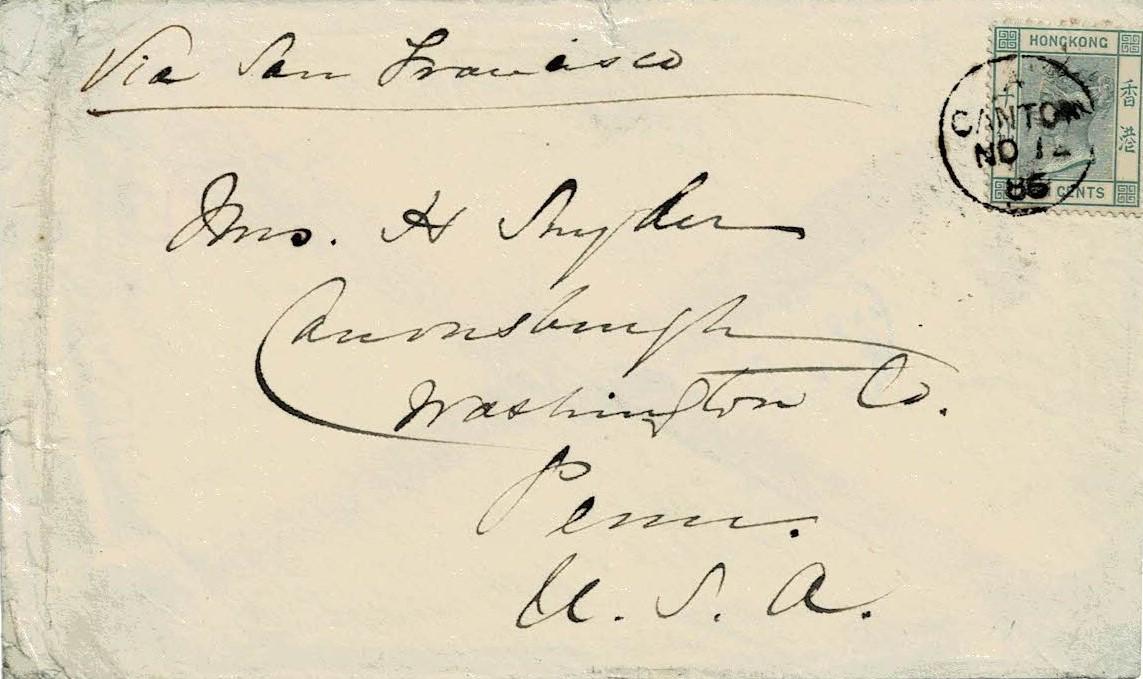 Via San Francisco
HONGKONG
香港
A
CANTON
NO 12
86
CENTS
Mrs. H Snyder
Canonsburgh
Washington Co.
Penn.
U. S. A.